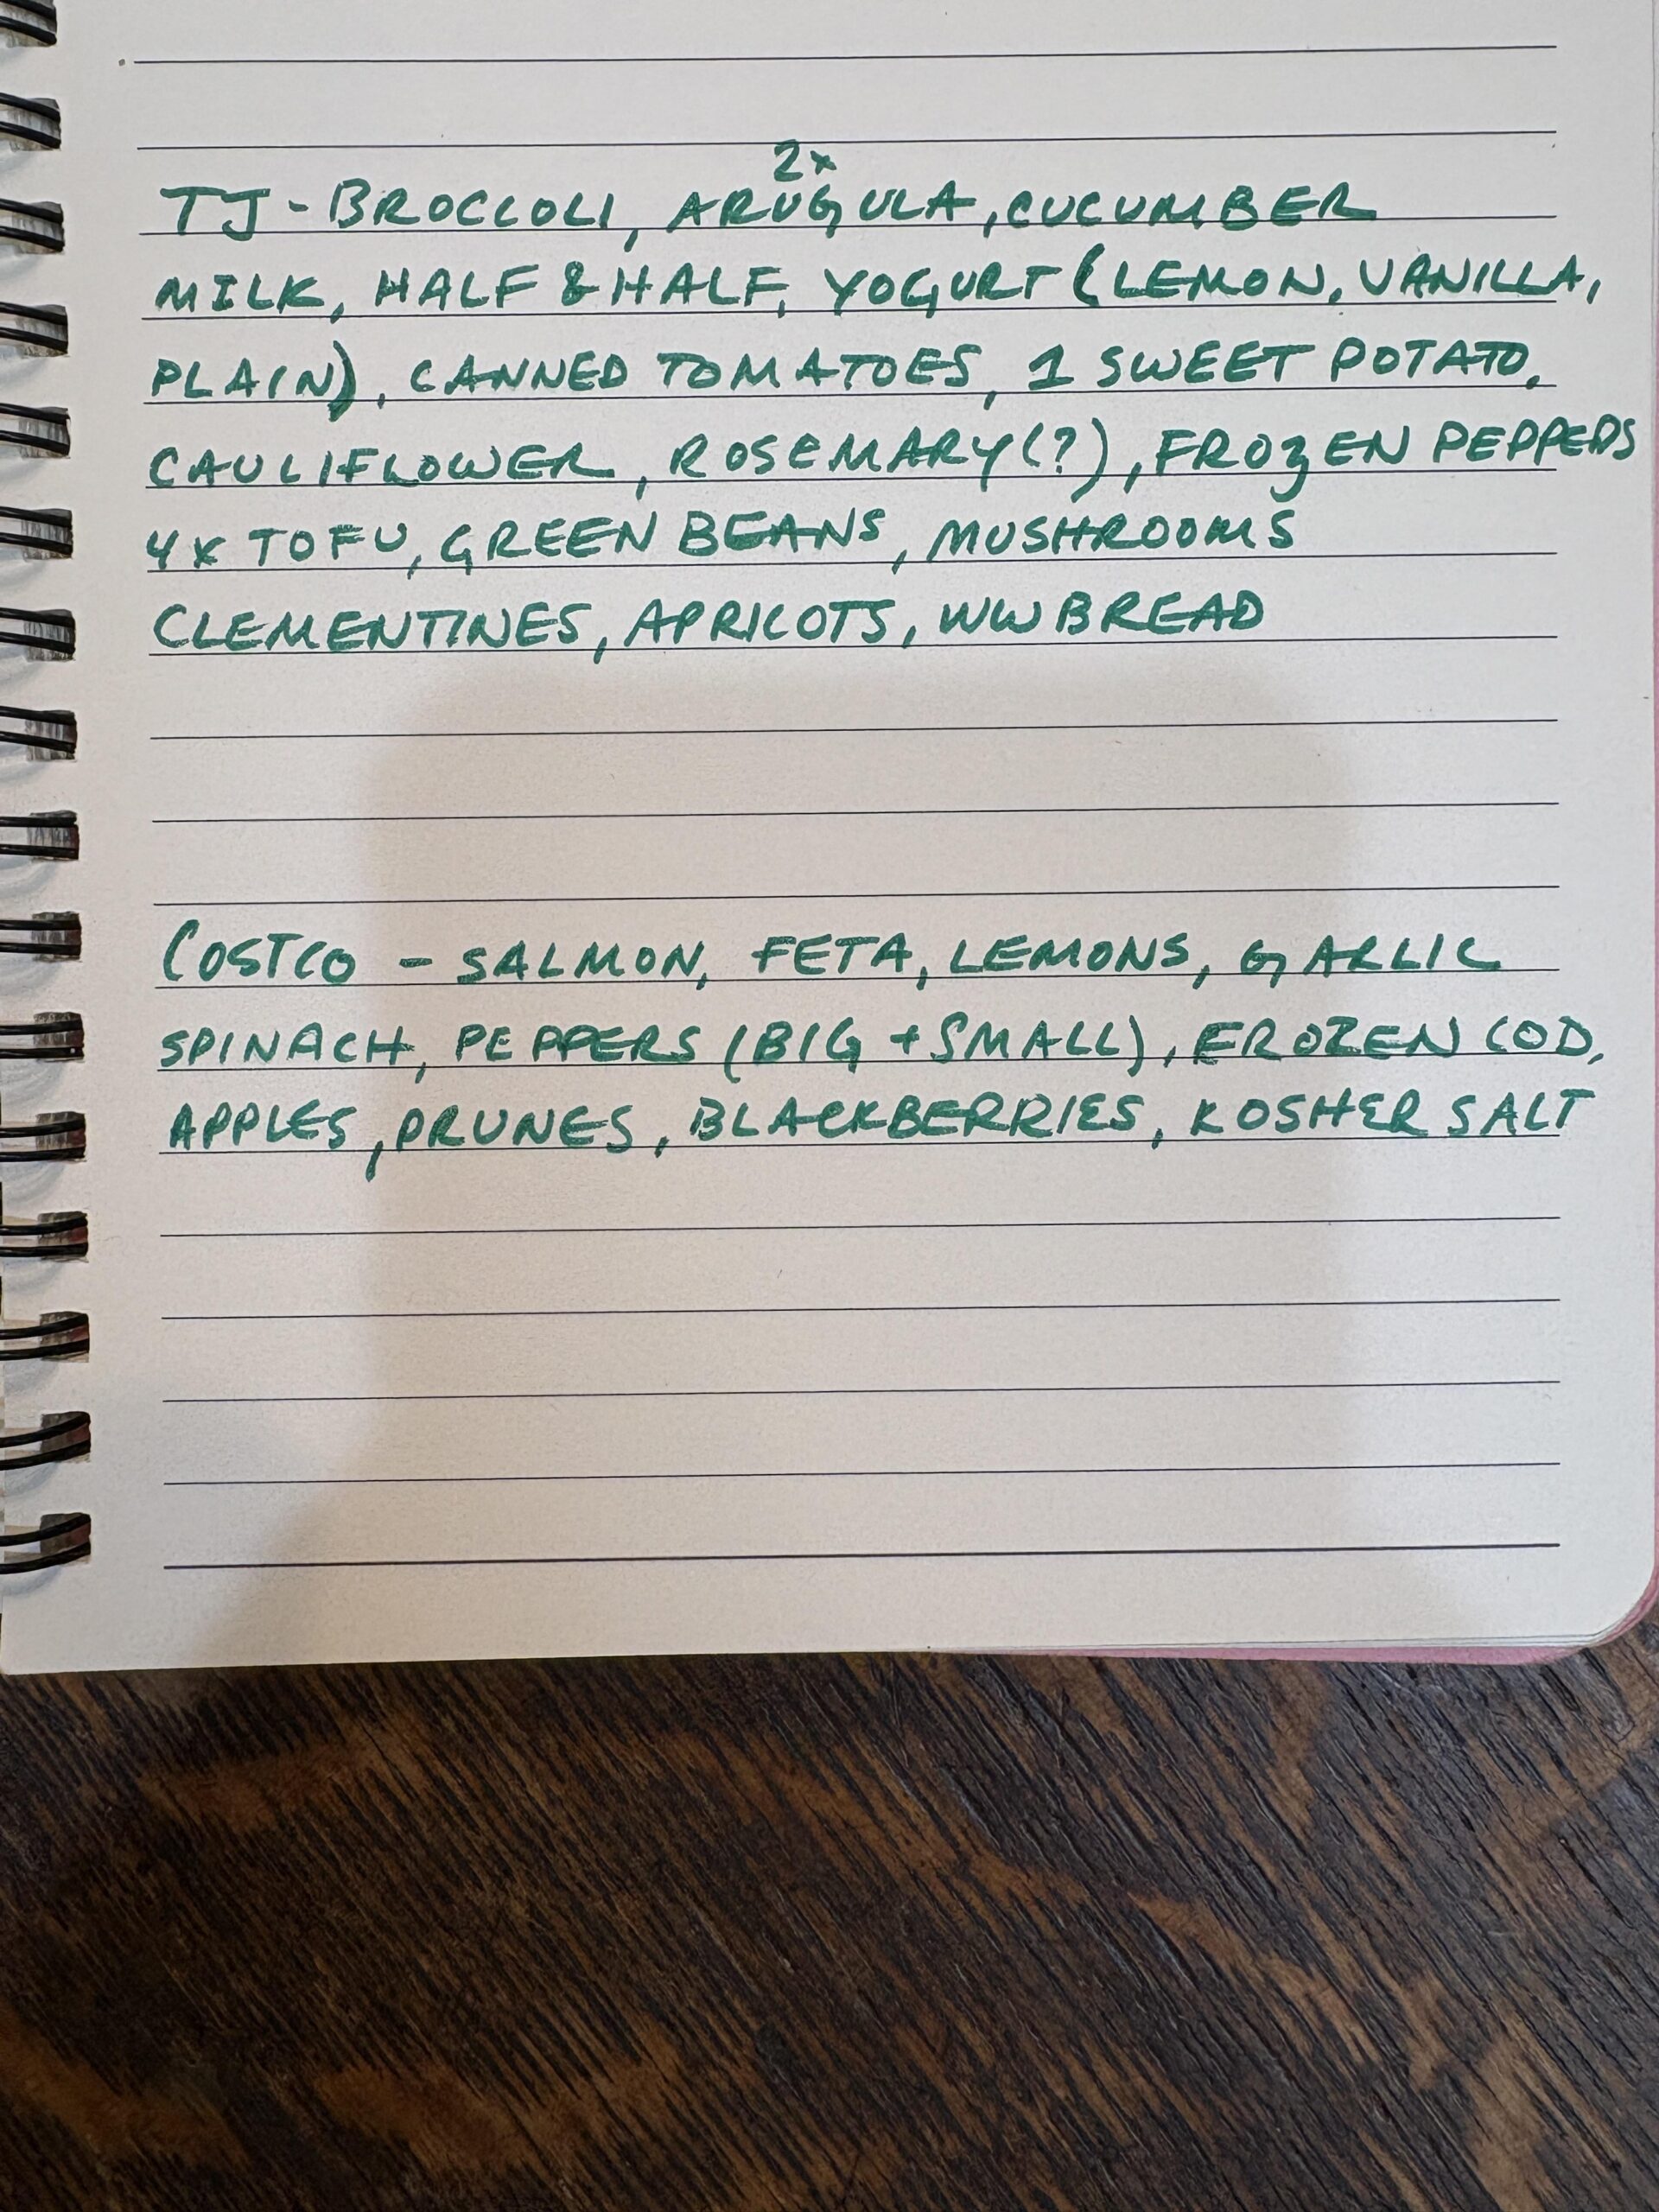 2x
TJ - BROCCOLI, ARUGULA, CUCUMBER
MILK, HALF & HALF, YOGURT (LEMON, VANILLA,
PLAIN), CANNED TOMATOES, 1 SWEET POTATO,
CAULIFLOWER, ROSEMARY(?), FROZEN PEPPERS
4x TOFU, GREEN BEANS, MUSHROOMS
CLEMENTINES, APRICOTS, WW BREAD
COSTCO - SALMON, FETA, LEMONS, GARLIC
SPINACH, PEPPERS (BIG + SMALL), FROZEN COD,
APPLES, PRUNES, BLACKBERRIES, KOSHER SALT